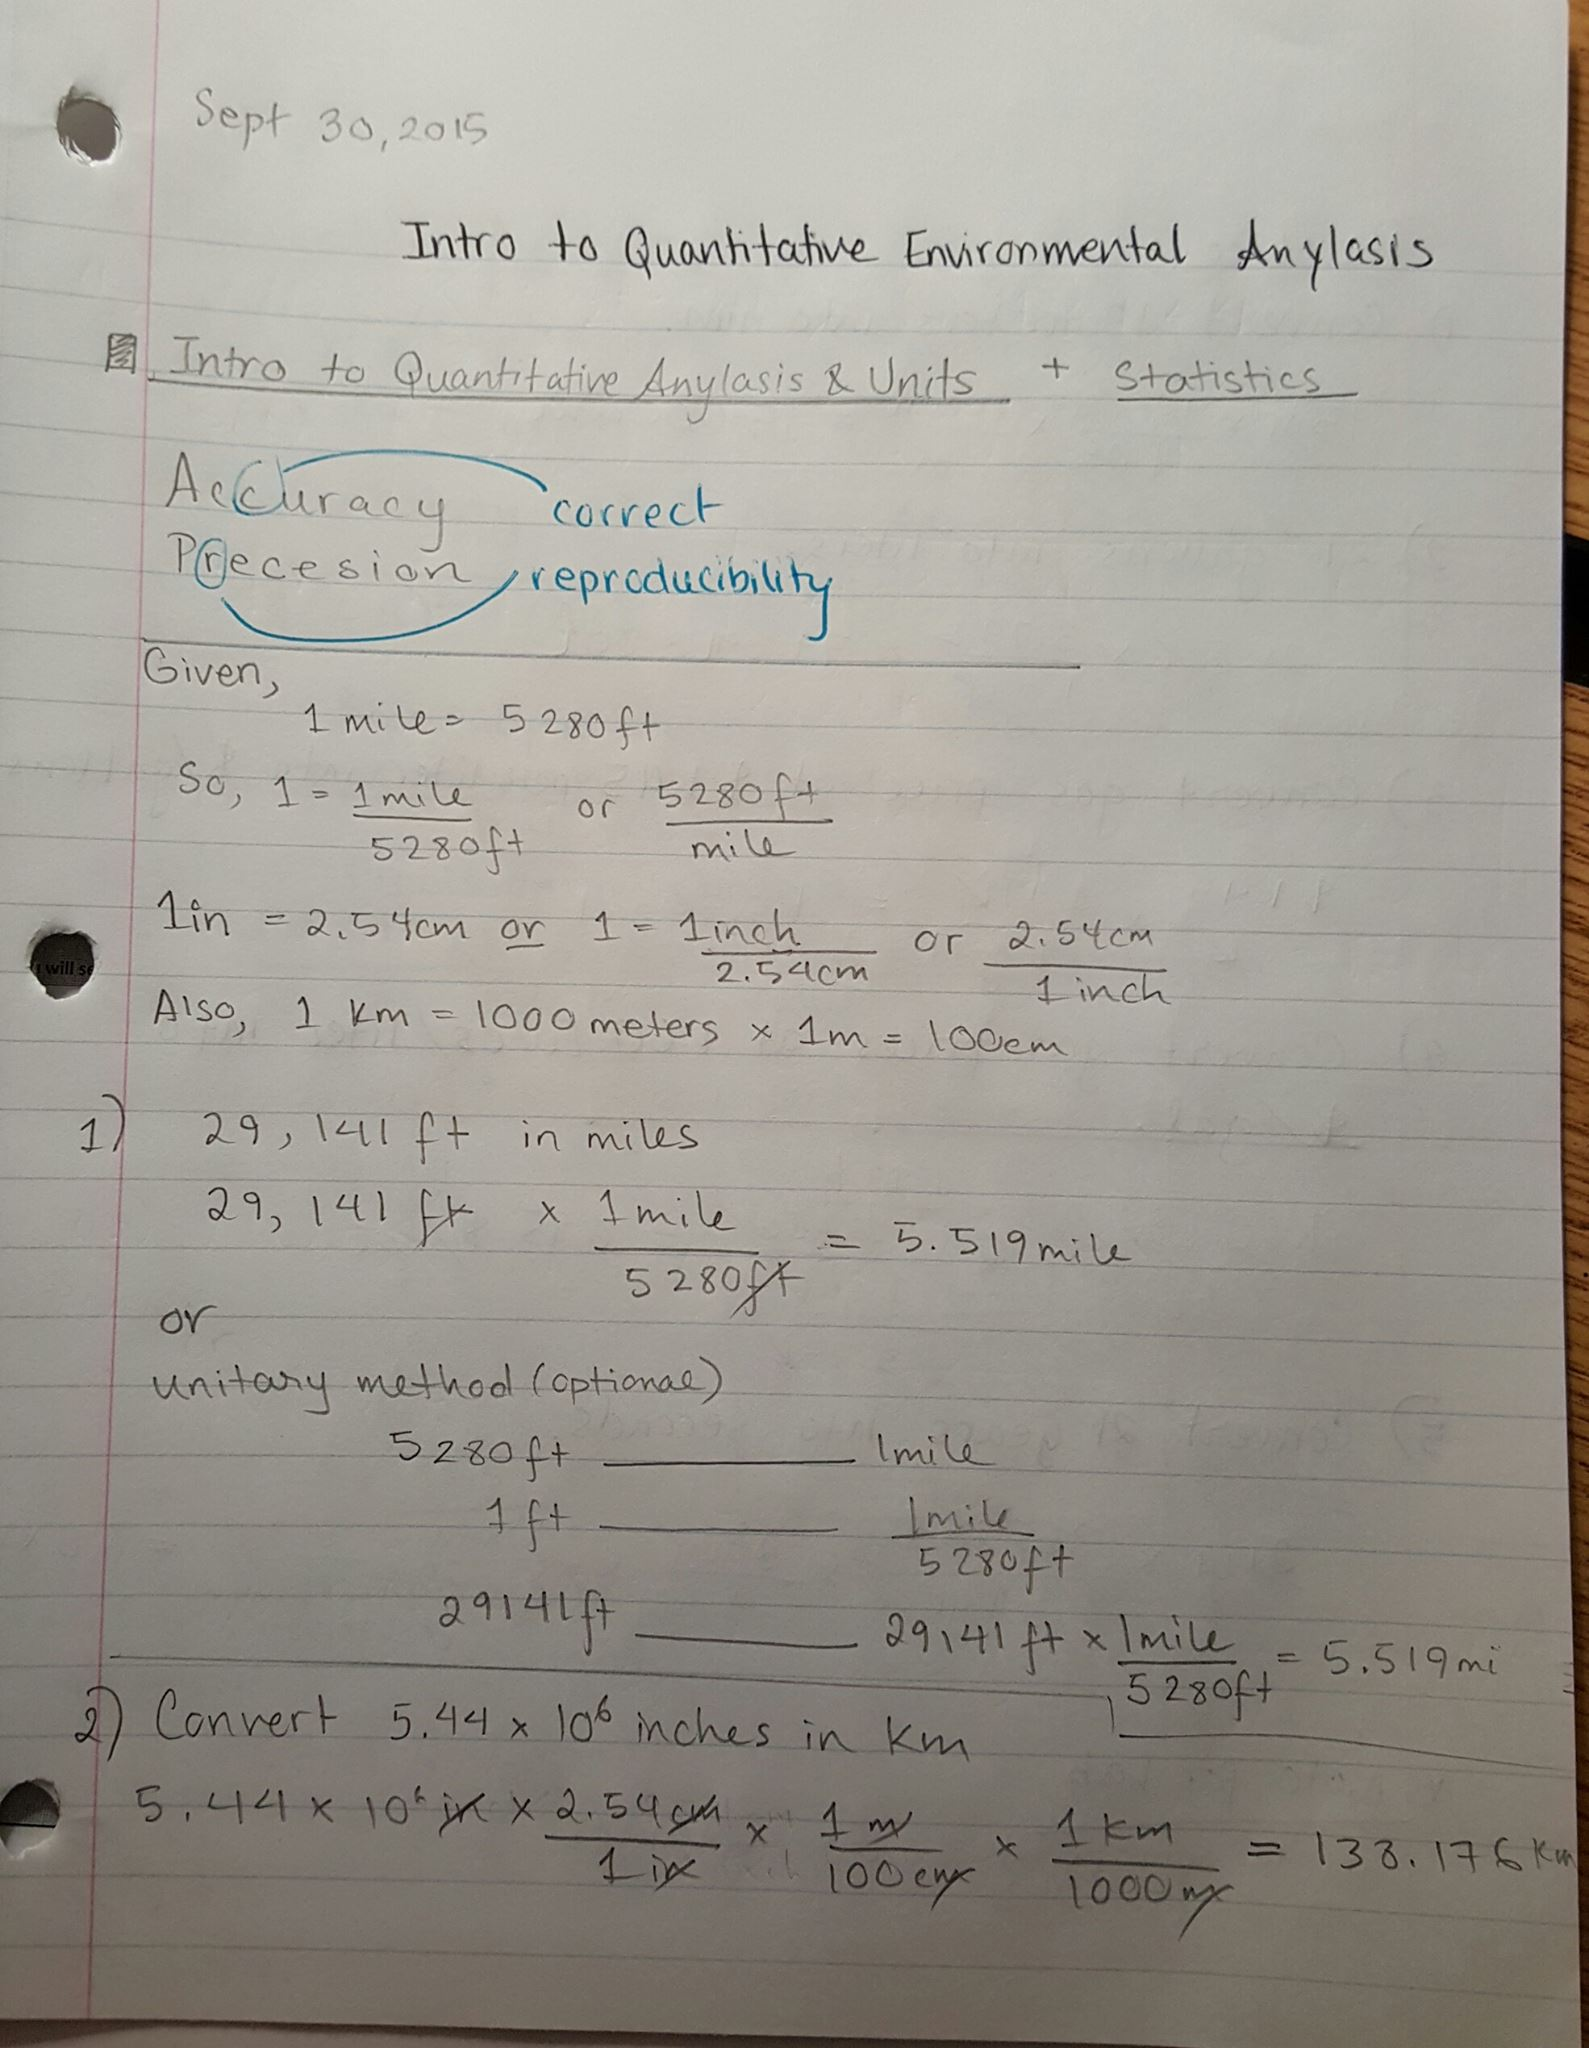 Sept 30, 2015
Intro to Quantitative Environmental Anylasis
Intro to Quantitative Anylasis & Units + Statistics
Accuracy correct
Precesion reproducibility
Given,
1 mile = 5280ft
So, 1 = 1 mile / 5280ft or 5280ft / mile
1in = 2.54cm or 1 = 1inch / 2.54cm or 2.54cm / 1 inch
Also, 1 Km = 1000 meters x 1m = 100cm
1) 29, 141 ft in miles
29, 141 ft x 1 mile / 5280ft = 5.519 mile
or
unitary method (optional)
5280ft 1mile
1 ft 1mile / 5280ft
29141ft 29141 ft x 1mile / 5280ft = 5.519 mi
2) Convert 5.44 x 10⁶ inches in Km
5.44 x 10⁶ in x 2.54 cm / 1 in x 1 m / 100 cm x 1 Km / 1000 m = 138.176 Km
will se